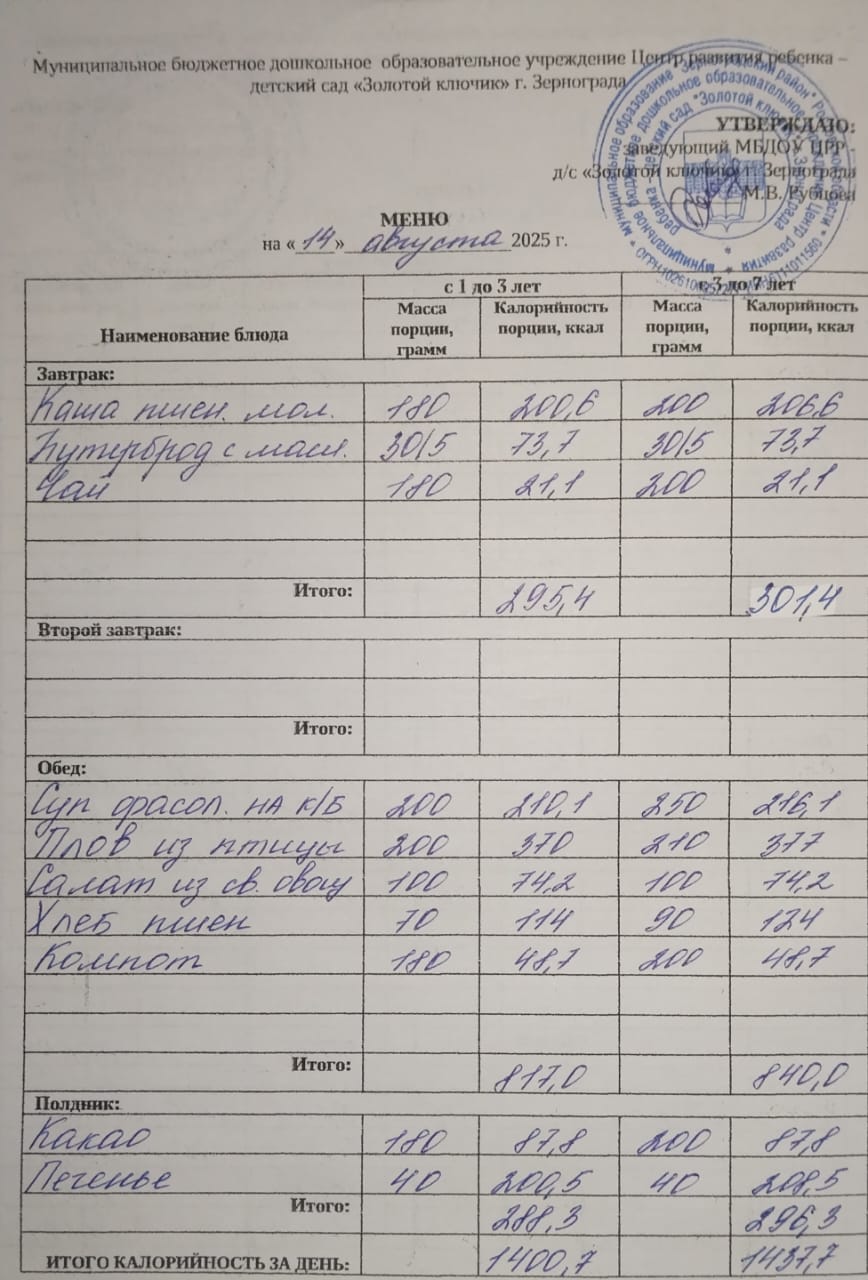 Муниципальное бюджетное дошкольное образовательное учреждение Центр развития ребенка –
детский сад «Золотой ключик» г. Зернограда
УТВЕРЖДАЮ:
заведующий МБДОУ ЦРР -
д/с «Золотой ключик» г. Зернограда
М.В. Рубцова
МЕНЮ
на «14» августа 2025 г.
Наименование блюда с 1 до 3 лет с 3 до 7 лет
Масса порции, грамм Калорийность порции, ккал Масса порции, грамм Калорийность порции, ккал
Завтрак:
Каша пшен. мол. 180 200,6 200 206,6
Бутерброд с масл. 30/5 73,7 30/5 73,7
Чай 180 21,1 200 21,1
Итого: 295,4 301,4
Второй завтрак:
Итого:
Обед:
Суп фасол. на к/б 200 210,1 250 216,1
Плов из птицы 200 370 210 377
Салат из св. овощ 100 74,2 100 74,2
Хлеб пшен 70 114 90 124
Компот 180 48,7 200 48,7
Итого: 817,0 840,0
Полдник:
Какао 180 87,8 200 87,8
Печенье 40 200,5 40 208,5
Итого: 288,3 296,3
ИТОГО КАЛОРИЙНОСТЬ ЗА ДЕНЬ: 1400,7 1437,7